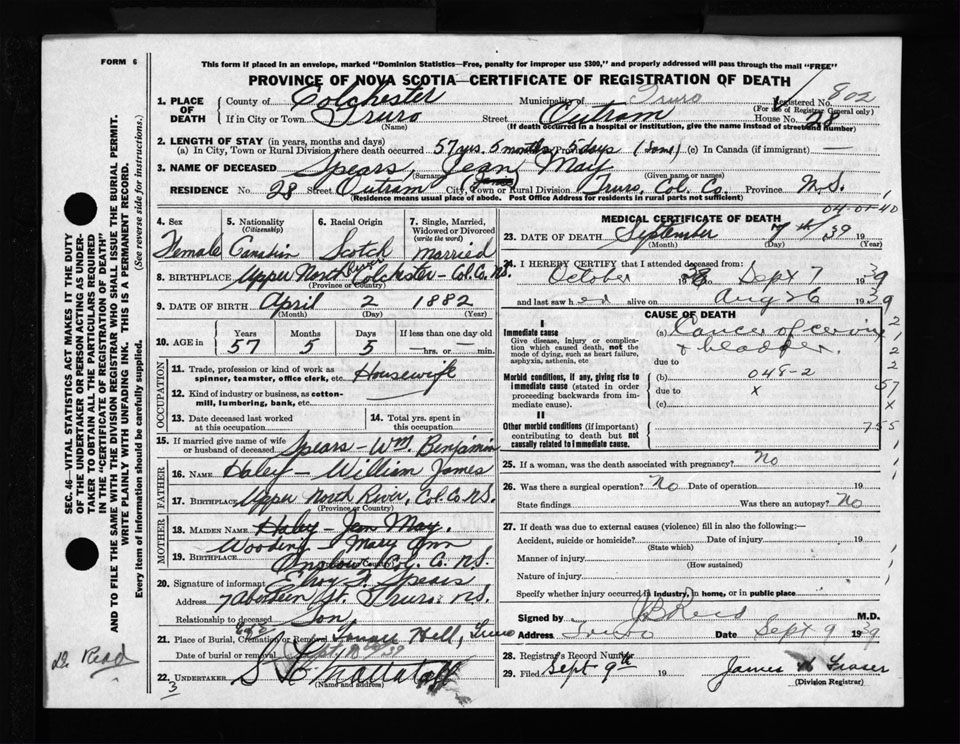 FORM 6
This form if placed in an envelope, marked "Dominion Statistics—Free, penalty for improper use $300," and properly addressed will pass through the mail "FREE"
PROVINCE OF NOVA SCOTIA—CERTIFICATE OF REGISTRATION OF DEATH
Registered No. 802
(For use of Registrar General only)
1. PLACE OF DEATH
County of Colchester Municipality of Truro
If in City or Town Truro Street Outram House No. 28
(Name) (If death occurred in a hospital or institution, give the name instead of street and number)
2. LENGTH OF STAY (in years, months and days)
(a) In City, Town or Rural Division where death occurred 57 yrs. 5 months 5 days (Same) (c) In Canada (if immigrant) —
3. NAME OF DECEASED Spears, Jean May
(Surname) (Given name or names)
RESIDENCE No. 28 Street Outram City, Town or Rural Division Truro, Col. Co. Province N.S.
(Residence means usual place of abode. Post Office Address for residents in rural parts not sufficient)
4. Sex Female
5. Nationality (Citizenship) Canadian
6. Racial Origin Scotch
7. Single, Married, Widowed or Divorced (write the word) Married
8. BIRTHPLACE Upper North River Colchester - Col. Co. N.S.
(Province or Country)
9. DATE OF BIRTH April 2 1882
(Month) (Day) (Year)
10. AGE in Years 57 Months 5 Days 5 If less than one day old —hrs. or —min.
OCCUPATION
11. Trade, profession or kind of work as spinner, teamster, office clerk, etc. Housewife
12. Kind of industry or business, as cotton-mill, lumbering, bank, etc.
13. Date deceased last worked at this occupation
14. Total yrs. spent in this occupation
15. If married give name of wife or husband of deceased Spears - Wm. Benjamin
FATHER
16. NAME Haley - William James
17. BIRTHPLACE Upper North River, Col. Co. N.S.
(Province or Country)
MOTHER
18. MAIDEN NAME Haley - Jean May.
Wooding - Mary Ann
19. BIRTHPLACE Onslow Col. Co. N.S.
20. Signature of informant Elroy S. Spears
Address 7 Aberdeen St. Truro N.S.
Relationship to deceased Son
21. Place of Burial, Cremation or Removal Hill, Truro
Date of burial or removal Sept
22. UNDERTAKER
(Name and address)
3
MEDICAL CERTIFICATE OF DEATH
04-01-40
23. DATE OF DEATH September 7th, 39 19
(Month) (Day) (Year)
24. I HEREBY CERTIFY that I attended deceased from:
October 38 Sept 7 1939
and last saw h er alive on Aug 26 1939
CAUSE OF DEATH
I
Immediate cause
Give disease, injury or complication which caused death, not the mode of dying, such as heart failure, asphyxia, asthenia, etc
(a) Cancer of cervix
+ bladder.
due to
Morbid conditions, if any, giving rise to immediate cause (stated in order proceeding backwards from immediate cause).
(b) 048-2
due to x
(c)
II
Other morbid conditions (if important) contributing to death but not causally related to immediate cause.
755
25. If a woman, was the death associated with pregnancy? No
26. Was there a surgical operation? No Date of operation 19
State findings Was there an autopsy? No
27. If death was due to external causes (violence) fill in also the following:—
Accident, suicide or homicide? Date of injury 19
(State which)
Manner of injury
(How sustained)
Nature of injury
Specify whether injury occurred in industry, in home, or in public place
Signed by M.D.
Address Truro Date Sept 9 1939
28. Registrar's Record Number
29. Filed Sept 9th 19 James
(Division Registrar)
SEC. 46—VITAL STATISTICS ACT MAKES IT THE DUTY
OF THE UNDERTAKER OR PERSON ACTING AS UNDER-
TAKER TO OBTAIN ALL THE PARTICULARS REQUIRED
IN THE "CERTIFICATE OF REGISTRATION OF DEATH"
AND TO FILE THE SAME WITH THE DIVISION REGISTRAR WHO SHALL ISSUE THE BURIAL PERMIT.
WRITE PLAINLY WITH UNFADING INK. THIS IS A PERMANENT RECORD.
Every item of information should be carefully supplied. (See reverse side for instructions.)
Dr. Read